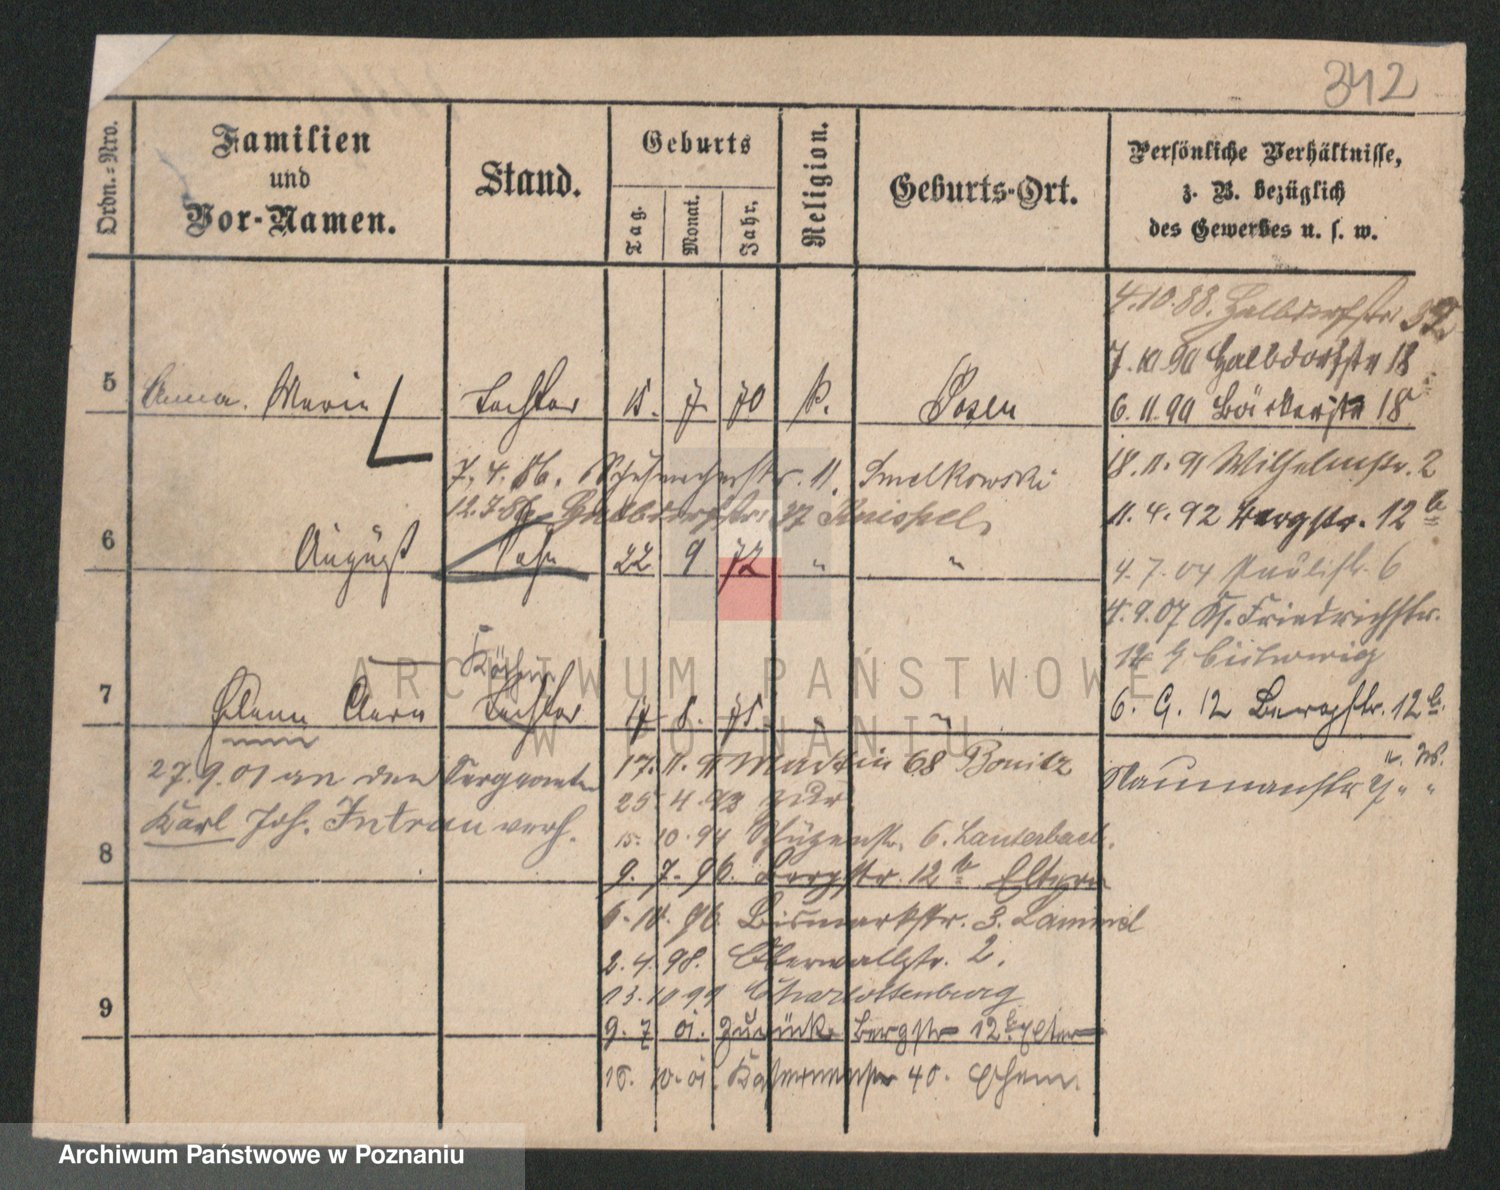 342
Ordn.=Nro.
Familien
und
Vor-Namen.
Stand.
Geburts
Tag.
Monat.
Jahr.
Religion.
Geburts-Ort.
Persönliche Verhältnisse,
z. B. bezüglich
des Gewerbes u. s. w.
4.10.88. Halbdorfstr 32
7.10.90 Halbdorfstr 18
5 Anna Marie Tochter 15. 7. 70 k. Posen
6.11.90 Bäckerstr 18
7.4.86. Schuhmacherstr. 11. Smelkowski
18.11.91 Wilhelmstr. 2
12.7.86 Halbdorfstr 37 Knispel,
11.4.92 Bergstr. 12 b
6 August Sohn 22 9 72 " "
4.7.04 Paulistr. 6
4.9.07 Ks. Friedrichstr.
Köchin
7 Helene Anna Tochter 17 8. 75. " "
6.9.12 Bergstr. 12 b.
27.9.01 an den Sergeanten
17.11.91 Martin 68 Bonitz
Naumannstr
Karl Joh. Intrau verh.
25 4 93 zur
15. 10. 94 Schützenstr. 6. Lauterbach.
8
9. 7. 96. Bergstr. 12 b Eltern
6. 10. 96 Bismarkstr. 3. Lammel
2. 4. 98. Oberwallstr. 2.
13. 10 99 Charlottenburg
9
9. 7 01. zurück Bergstr 12 b Eltern
15. 10. 01. Kasernenstr 40.
ARCHIWUM PAŃSTWOWE
W POZNANIU
Archiwum Państwowe w Poznaniu